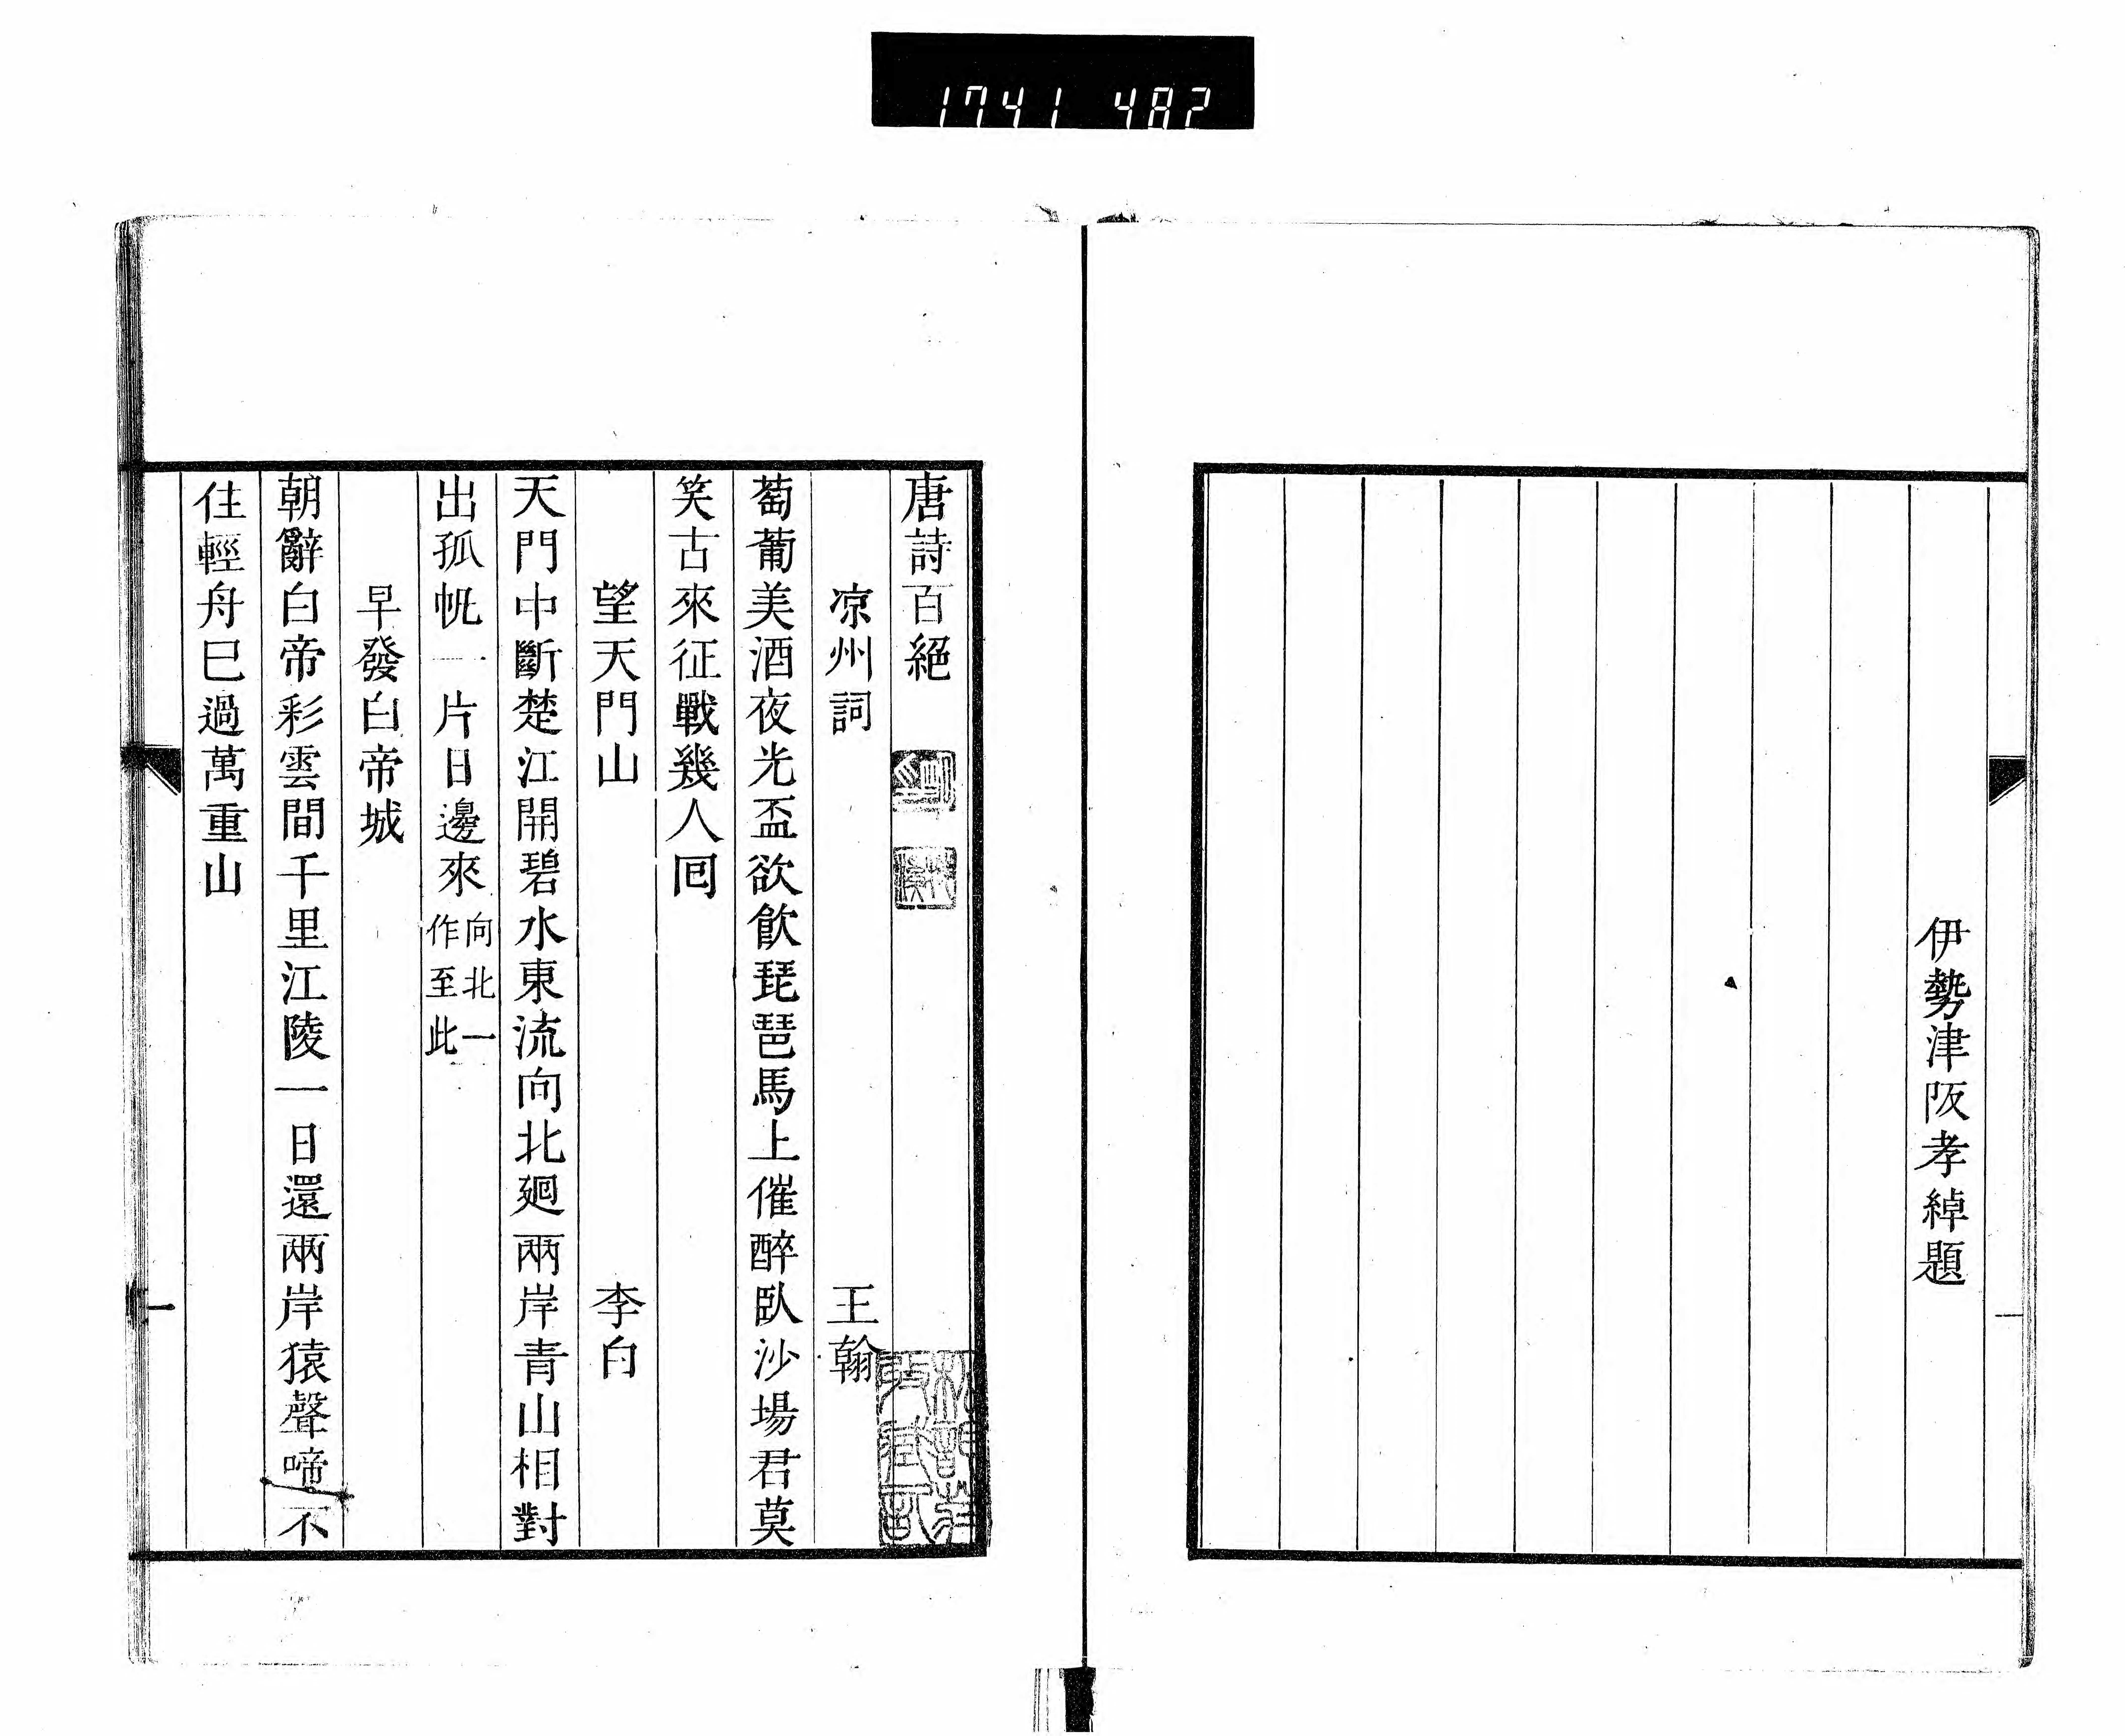 1741 482
伊勢津阪孝綽題
唐詩百絕
凉州詞 王翰
萄葡美酒夜光盃欲飮琵琶馬上催醉臥沙場君莫
笑古來征戰幾人囘
望天門山 李白
天門中斷楚江開碧水東流向北廻兩岸青山相對
出孤帆一片日邊來向北一作至此
早發白帝城
朝辭白帝彩雲間千里江陵一日還兩岸猿聲啼不
住輕舟巳過萬重山
一